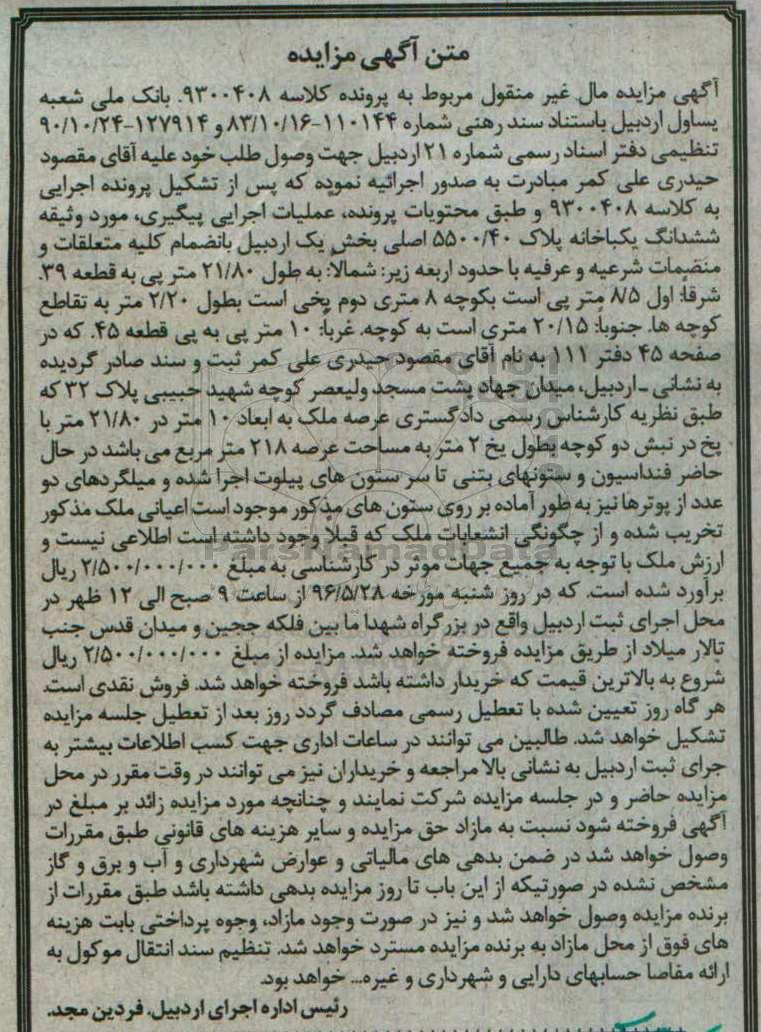 متن آگهی مزایده
آگهی مزایده مال غیر منقول مربوط به پرونده کلاسه ۹۳۰۰۴۰۸. بانک ملی شعبه
یساول اردبیل باستناد سند رهنی شماره ۱۱۰۱۴۴-۸۳/۱۰/۱۶ و ۱۲۷۹۱۴-۹۰/۱۰/۲۴
تنظیمی دفتر اسناد رسمی شماره ۲۱ اردبیل جهت وصول طلب خود علیه آقای مقصود
حیدری علی کمر مبادرت به صدور اجرائیه نموده که پس از تشکیل پرونده اجرایی
به کلاسه ۹۳۰۰۴۰۸ و طبق محتویات پرونده، عملیات اجرایی پیگیری، مورد وثیقه
ششدانگ یکباخانه پلاک ۵۵۰۰/۴۰ اصلی بخش یک اردبیل بانضمام کلیه متعلقات و
منضمات شرعیه و عرفیه با حدود اربعه زیر: شمالاً: به طول ۲۱/۸۰ متر پی به قطعه ۳۹.
شرقا: اول ۸/۵ متر پی است بکوچه ۸ متری دوم یخی است بطول ۲/۲۰ متر به تقاطع
کوچه ها. جنوباً: ۲۰/۱۵ متری است به کوچه. غرباً: ۱۰ متر پی به پی قطعه ۴۵. که در
صفحه ۴۵ دفتر ۱۱۱ به نام آقای مقصود حیدری علی کمر ثبت و سند صادر گردیده
به نشانی ـ اردبیل، میدان جهاد پشت مسجد ولیعصر کوچه شهید حبیبی پلاک ۳۲ که
طبق نظریه کارشناس رسمی دادگستری عرصه ملک به ابعاد ۱۰ متر در ۲۱/۸۰ متر با
پخ در نبش دو کوچه بطول یخ ۲ متر به مساحت عرصه ۲۱۸ متر مربع می باشد در حال
حاضر فنداسیون و ستونهای بتنی تا سر ستون های پیلوت اجرا شده و میلگردهای دو
عدد از پوترها نیز به طور آماده بر روی ستون های مذکور موجود است اعیانی ملک مذکور
تخریب شده و از چگونگی انشعابات ملک که قبلاً وجود داشته است اطلاعی نیست و
ارزش ملک با توجه به جمیع جهات موثر در کارشناسی به مبلغ ۲/۵۰۰/۰۰۰/۰۰۰ ریال
برآورد شده است. که در روز شنبه مورخه ۹۶/۵/۲۸ از ساعت ۹ صبح الی ۱۲ ظهر در
محل اجرای ثبت اردبیل واقع در بزرگراه شهدا ما بین فلکه ججین و میدان قدس جنب
تالار میلاد از طریق مزایده فروخته خواهد شد. مزایده از مبلغ ۲/۵۰۰/۰۰۰/۰۰۰ ریال
شروع به بالاترین قیمت که خریدار داشته باشد فروخته خواهد شد. فروش نقدی است.
هر گاه روز تعیین شده با تعطیل رسمی مصادف گردد روز بعد از تعطیل جلسه مزایده
تشکیل خواهد شد. طالبین می توانند در ساعات اداری جهت کسب اطلاعات بیشتر به
جرای ثبت اردبیل به نشانی بالا مراجعه و خریداران نیز می توانند در وقت مقرر در محل
مزایده حاضر و در جلسه مزایده شرکت نمایند و چنانچه مورد مزایده زائد بر مبلغ در
آگهی فروخته شود نسبت به مازاد حق مزایده و سایر هزینه های قانونی طبق مقررات
وصول خواهد شد در ضمن بدهی های مالیاتی و عوارض شهرداری و آب و برق و گاز
مشخص نشده در صورتیکه از این باب تا روز مزایده بدهی داشته باشد طبق مقررات از
برنده مزایده وصول خواهد شد و نیز در صورت وجود مازاد، وجوه پرداختی بابت هزینه
های فوق از محل مازاد به برنده مزایده مسترد خواهد شد. تنظیم سند انتقال موکول به
ارائه مفاصا حسابهای دارایی و شهرداری و غیره... خواهد بود.
رئیس اداره اجرای اردبیل. فردین مجد.
ParsNamadData